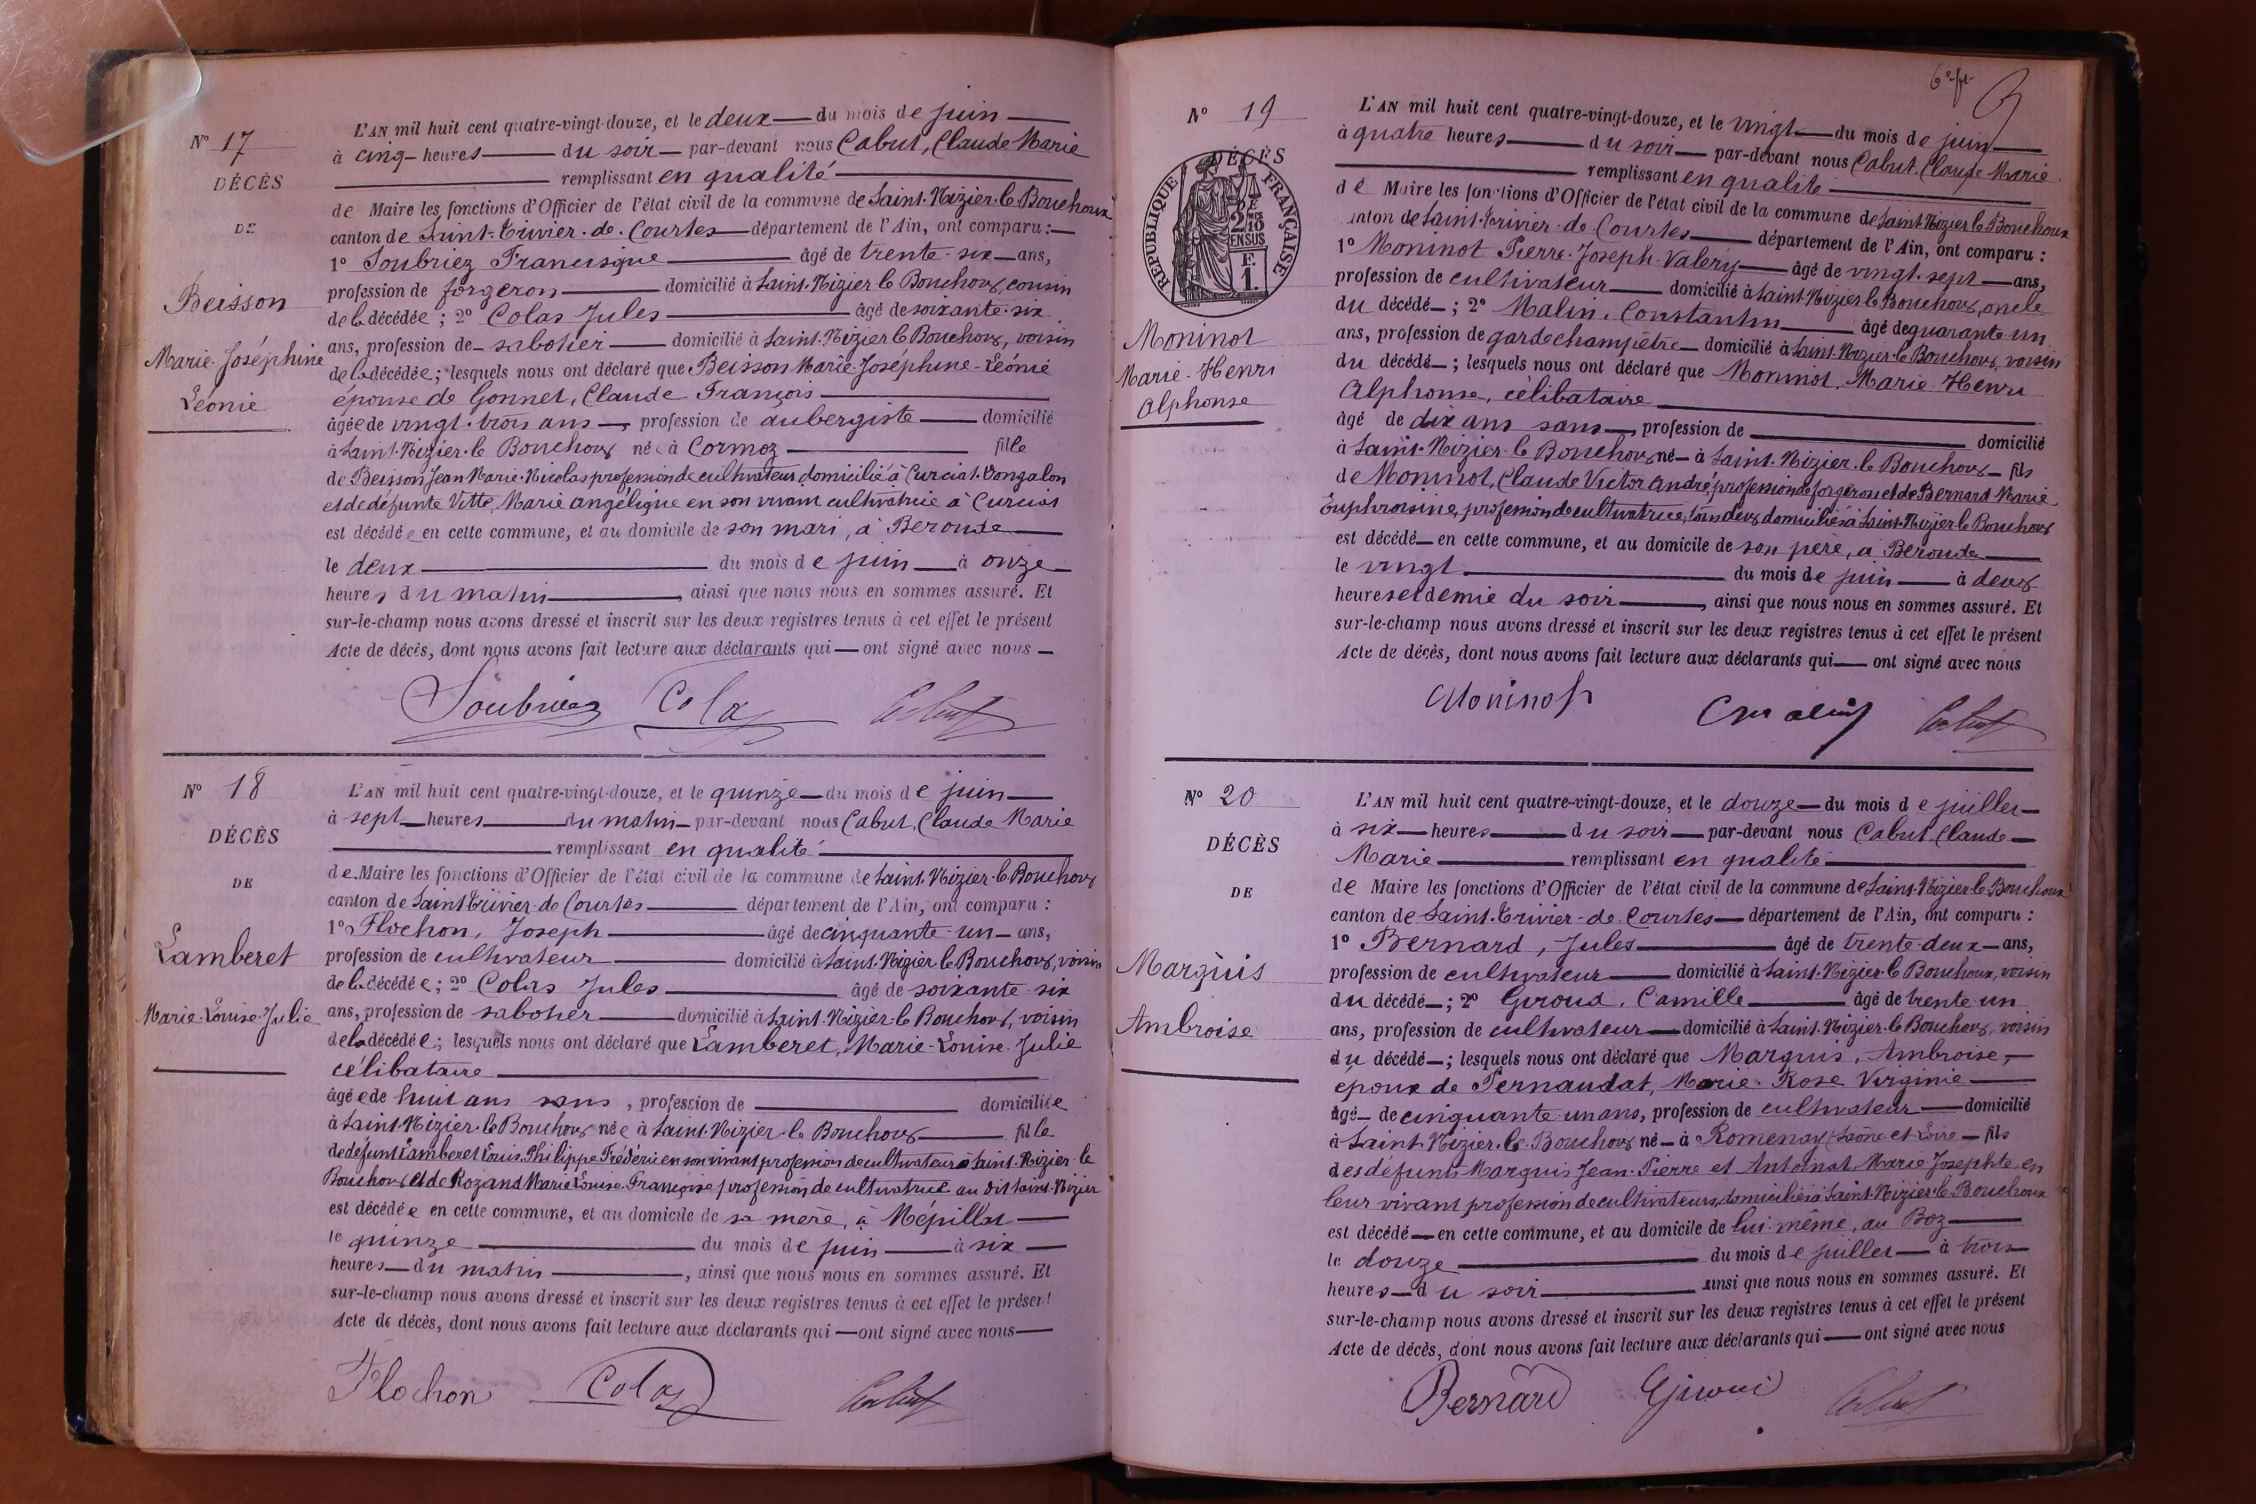 N° 17
DÉCÈS
DE
Beisson
Marie-Joséphine
Léonie
L'AN mil huit cent quatre-vingt-douze, et le deux du mois de juin
à cinq heures du soir par-devant nous Cabut, Claude Marie
remplissant en qualité
de Maire les fonctions d'Officier de l'état civil de la commune de Saint-Nizier-le-Bouchoux
canton de Saint-Trivier-de-Courtes département de l'Ain, ont comparu :
1° Soubriez Francisque âgé de trente-six ans,
profession de forgeron domicilié à Saint-Nizier le Bouchoux, cousin
de la décédée ; 2° Colas Jules âgé de soixante-six
ans, profession de sabotier domicilié à Saint-Nizier le Bouchoux, voisin
de la décédée ; lesquels nous ont déclaré que Beisson Marie-Joséphine-Léonie
épouse de Gonnet, Claude François
âgée de vingt-trois ans, profession de aubergiste domicilié
à Saint-Nizier-le Bouchoux née à Cormoz fille
de Beisson Jean Marie-Nicolas profession de cultivateur domicilié à Curciat-Dongalon
et de défunte Vitte, Marie angélique en son vivant cultivatrice à Curciat
est décédée en cette commune, et au domicile de son mari, à Beroude
le deux du mois de juin à onze
heures du matin, ainsi que nous nous en sommes assuré. Et
sur-le-champ nous avons dressé et inscrit sur les deux registres tenus à cet effet le présent
Acte de décès, dont nous avons fait lecture aux déclarants qui ont signé avec nous
Soubriez Colas Cabut
N° 18
DÉCÈS
DE
Lamberet
Marie-Louise-Julie
L'AN mil huit cent quatre-vingt-douze, et le quinze du mois de juin
à sept heures du matin par-devant nous Cabut, Claude Marie
remplissant en qualité
de Maire les fonctions d'Officier de l'état civil de la commune de Saint-Nizier-le Bouchoux
canton de Saint Trivier-de Courtes département de l'Ain, ont comparu :
1° Flochon, Joseph âgé de cinquante-un ans,
profession de cultivateur domicilié à Saint-Nizier le Bouchoux, voisin
de la décédée ; 2° Colas Jules âgé de soixante-six
ans, profession de sabotier domicilié à Saint-Nizier-le Bouchoux, voisin
de la décédée ; lesquels nous ont déclaré que Lamberet, Marie-Louise-Julie
célibataire
âgée de huit ans sans, profession de domiciliée
à Saint-Nizier-le Bouchoux née à Saint-Nizier-le Bouchoux fille
de défunt Lamberet Louis Philippe Frédéric en son vivant profession de cultivateur à Saint-Nizier-le
Bouchoux et de Rozand Marie Louise Françoise profession de cultivatrice au dit Saint-Nizier
est décédée en cette commune, et au domicile de sa mère, à Mépillat
le quinze du mois de juin à six
heures du matin, ainsi que nous nous en sommes assuré. Et
sur-le-champ nous avons dressé et inscrit sur les deux registres tenus à cet effet le présent
Acte de décès, dont nous avons fait lecture aux déclarants qui ont signé avec nous
Flochon Colas Cabut
6e ft
N° 19
DÉCÈS
RÉPUBLIQUE FRANÇAISE
2/10 EN SUS
F. 1.
Moninot
Marie-Henri
Alphonse
L'AN mil huit cent quatre-vingt-douze, et le vingt du mois de juin
à quatre heures du soir par-devant nous Cabut, Claude Marie
remplissant en qualité
de Maire les fonctions d'Officier de l'état civil de la commune de Saint-Nizier le Bouchoux
canton de Saint-Trivier-de Courtes département de l'Ain, ont comparu :
1° Moninot Pierre-Joseph-Valéry âgé de vingt-sept ans,
profession de cultivateur domicilié à Saint-Nizier le Bouchoux, oncle
du décédé ; 2° Malin, Constantin âgé de quarante un
ans, profession de garde champêtre domicilié à Saint-Nizier-le Bouchoux, voisin
du décédé ; lesquels nous ont déclaré que Moninot, Marie-Henri
Alphonse, célibataire
âgé de dix ans sans, profession de domicilié
à Saint-Nizier-le Bouchoux né à Saint-Nizier-le Bouchoux fils
de Moninot, Claude Victor André, profession de forgeron et de Bernard Marie
Euphroisine, profession de cultivatrice, tous deux domiciliés à Saint-Nizier le Bouchoux
est décédé en cette commune, et au domicile de son père, à Beroude
le vingt du mois de juin à deux
heures et demie du soir, ainsi que nous nous en sommes assuré. Et
sur-le-champ nous avons dressé et inscrit sur les deux registres tenus à cet effet le présent
Acte de décès, dont nous avons fait lecture aux déclarants qui ont signé avec nous
Moninot Cmalin Cabut
N° 20
DÉCÈS
DE
Marquis
Ambroise
L'AN mil huit cent quatre-vingt-douze, et le douze du mois de juillet
à six heures du soir par-devant nous Cabut, Claude
Marie remplissant en qualité
de Maire les fonctions d'Officier de l'état civil de la commune de Saint-Nizier-le-Bouchoux
canton de Saint-Trivier-de-Courtes département de l'Ain, ont comparu :
1° Bernard, Jules âgé de trente-deux ans,
profession de cultivateur domicilié à Saint-Nizier-le Bouchoux, voisin
du décédé ; 2° Giroud, Camille âgé de trente-un
ans, profession de cultivateur domicilié à Saint-Nizier-le Bouchoux, voisin
du décédé ; lesquels nous ont déclaré que Marquis, Ambroise,
époux de Pernaudat, Marie-Rose Virginie
âgé de cinquante-un ans, profession de cultivateur domicilié
à Saint-Nizier-le-Bouchoux né à Romenay (Saône et Loire fils
des défunts Marquis Jean-Pierre et Antoinat Marie Josephte en
leur vivant profession de cultivateurs, domiciliés à Saint-Nizier-le Bouchoux
est décédé en cette commune, et au domicile de lui-même, au Boz
le douze du mois de juillet à trois
heures du soir ainsi que nous nous en sommes assuré. Et
sur-le-champ nous avons dressé et inscrit sur les deux registres tenus à cet effet le présent
Acte de décès, dont nous avons fait lecture aux déclarants qui ont signé avec nous
Bernard Giroud Cabut